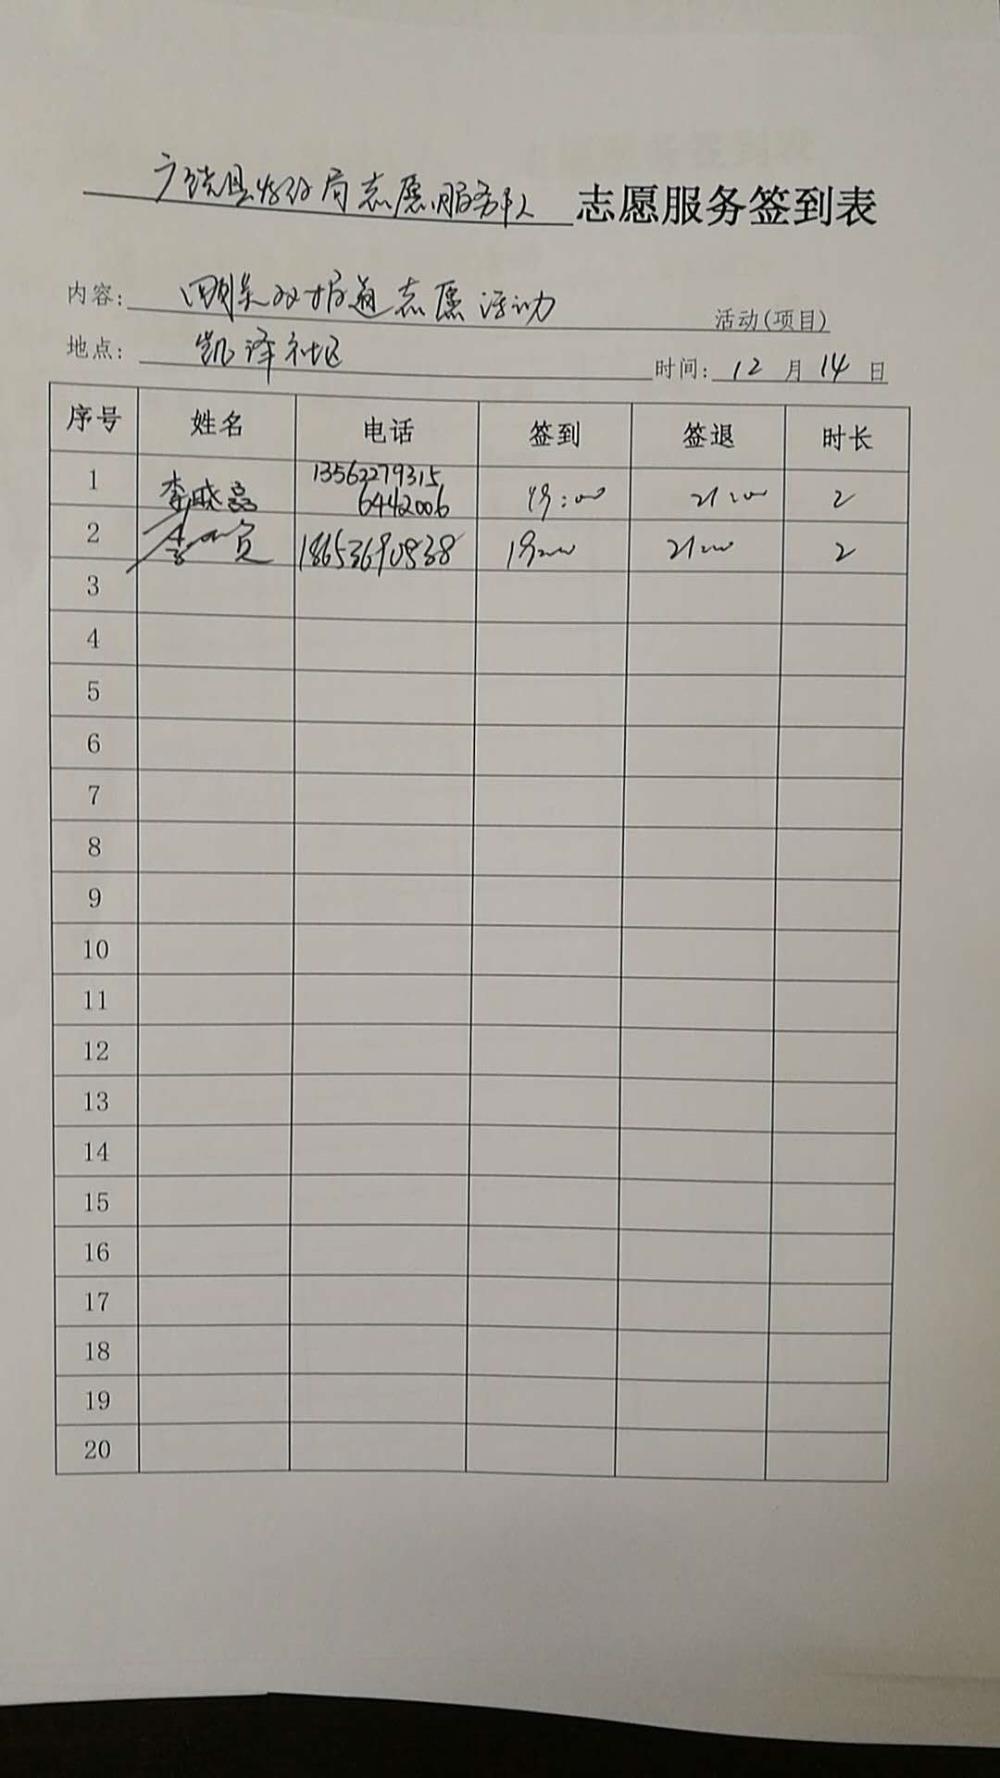 广饶县发改局志愿服务队 志愿服务签到表
内容: 双报道志愿活动 活动(项目)
地点: 凯泽社区 时间: 12 月 14 日
序号 姓名 电话 签到 签退 时长
1 李 13562279315 6442006 19:00 21:00 2
2 18653690838 19:00 21:00 2
3
4
5
6
7
8
9
10
11
12
13
14
15
16
17
18
19
20